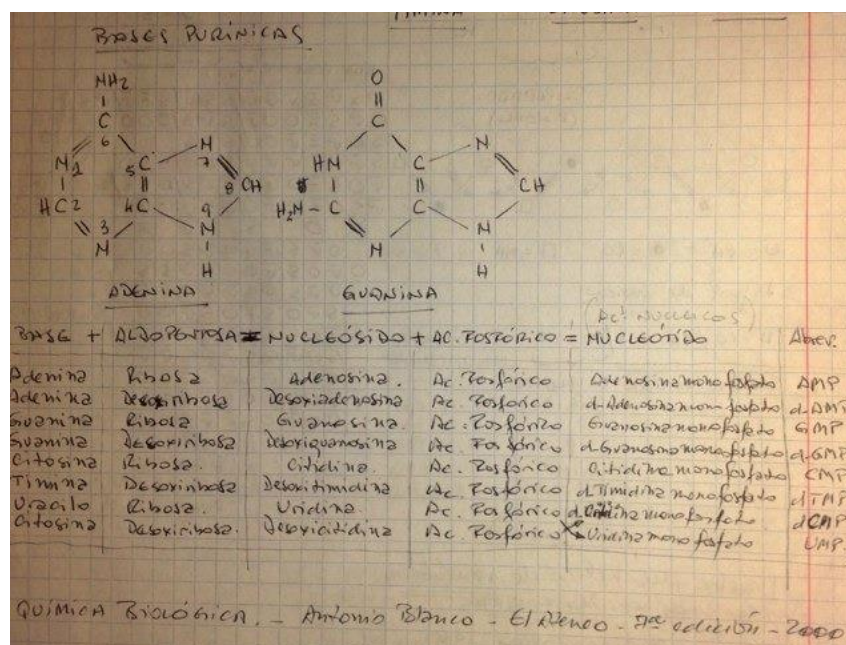 BASES PURÍNICAS
NH2
C
6
N1
5C
N
7
HC2
4C
8 CH
3
N
9
N
H
ADENINA
O
C
HN
C
N
CH
H2N-C
C
N
N
H
GUANINA
(Ac. NUCLEICOS)
BASE + ALDOPENTOSA = NUCLEÓSIDO + AC. FOSFÓRICO = NUCLEÓTIDO Abrev.
Adenina Ribosa Adenosina. Ac. Fosfórico Adenosina monofosfato AMP
Adenina Desoxiribosa Desoxiadenosina Ac. Fosfórico d-Adenosina monofosfato d-AMP
Guanina Ribosa Guanosina. Ac. Fosfórico Guanosina monofosfato GMP
Guanina Desoxiribosa Desoxiguanosina Ac. Fosfórico d-Guanosina monofosfato d-GMP
Citosina Ribosa. Citidina. Ac. Fosfórico Citidina monofosfato CMP
Timina Desoxiribosa Desoxitimidina Ac. Fosfórico d.Timidina monofosfato dTMP
Uracilo Ribosa. Uridina. Ac. Fosfórico d.Citidina monofosfato dCMP
Citosina Desoxiribosa. Desoxicitidina Ac. Fosfórico Uridina monofosfato UMP.
QUÍMICA BIOLÓGICA. - Antonio Blanco - El Ateneo - 7ma edición - 2000